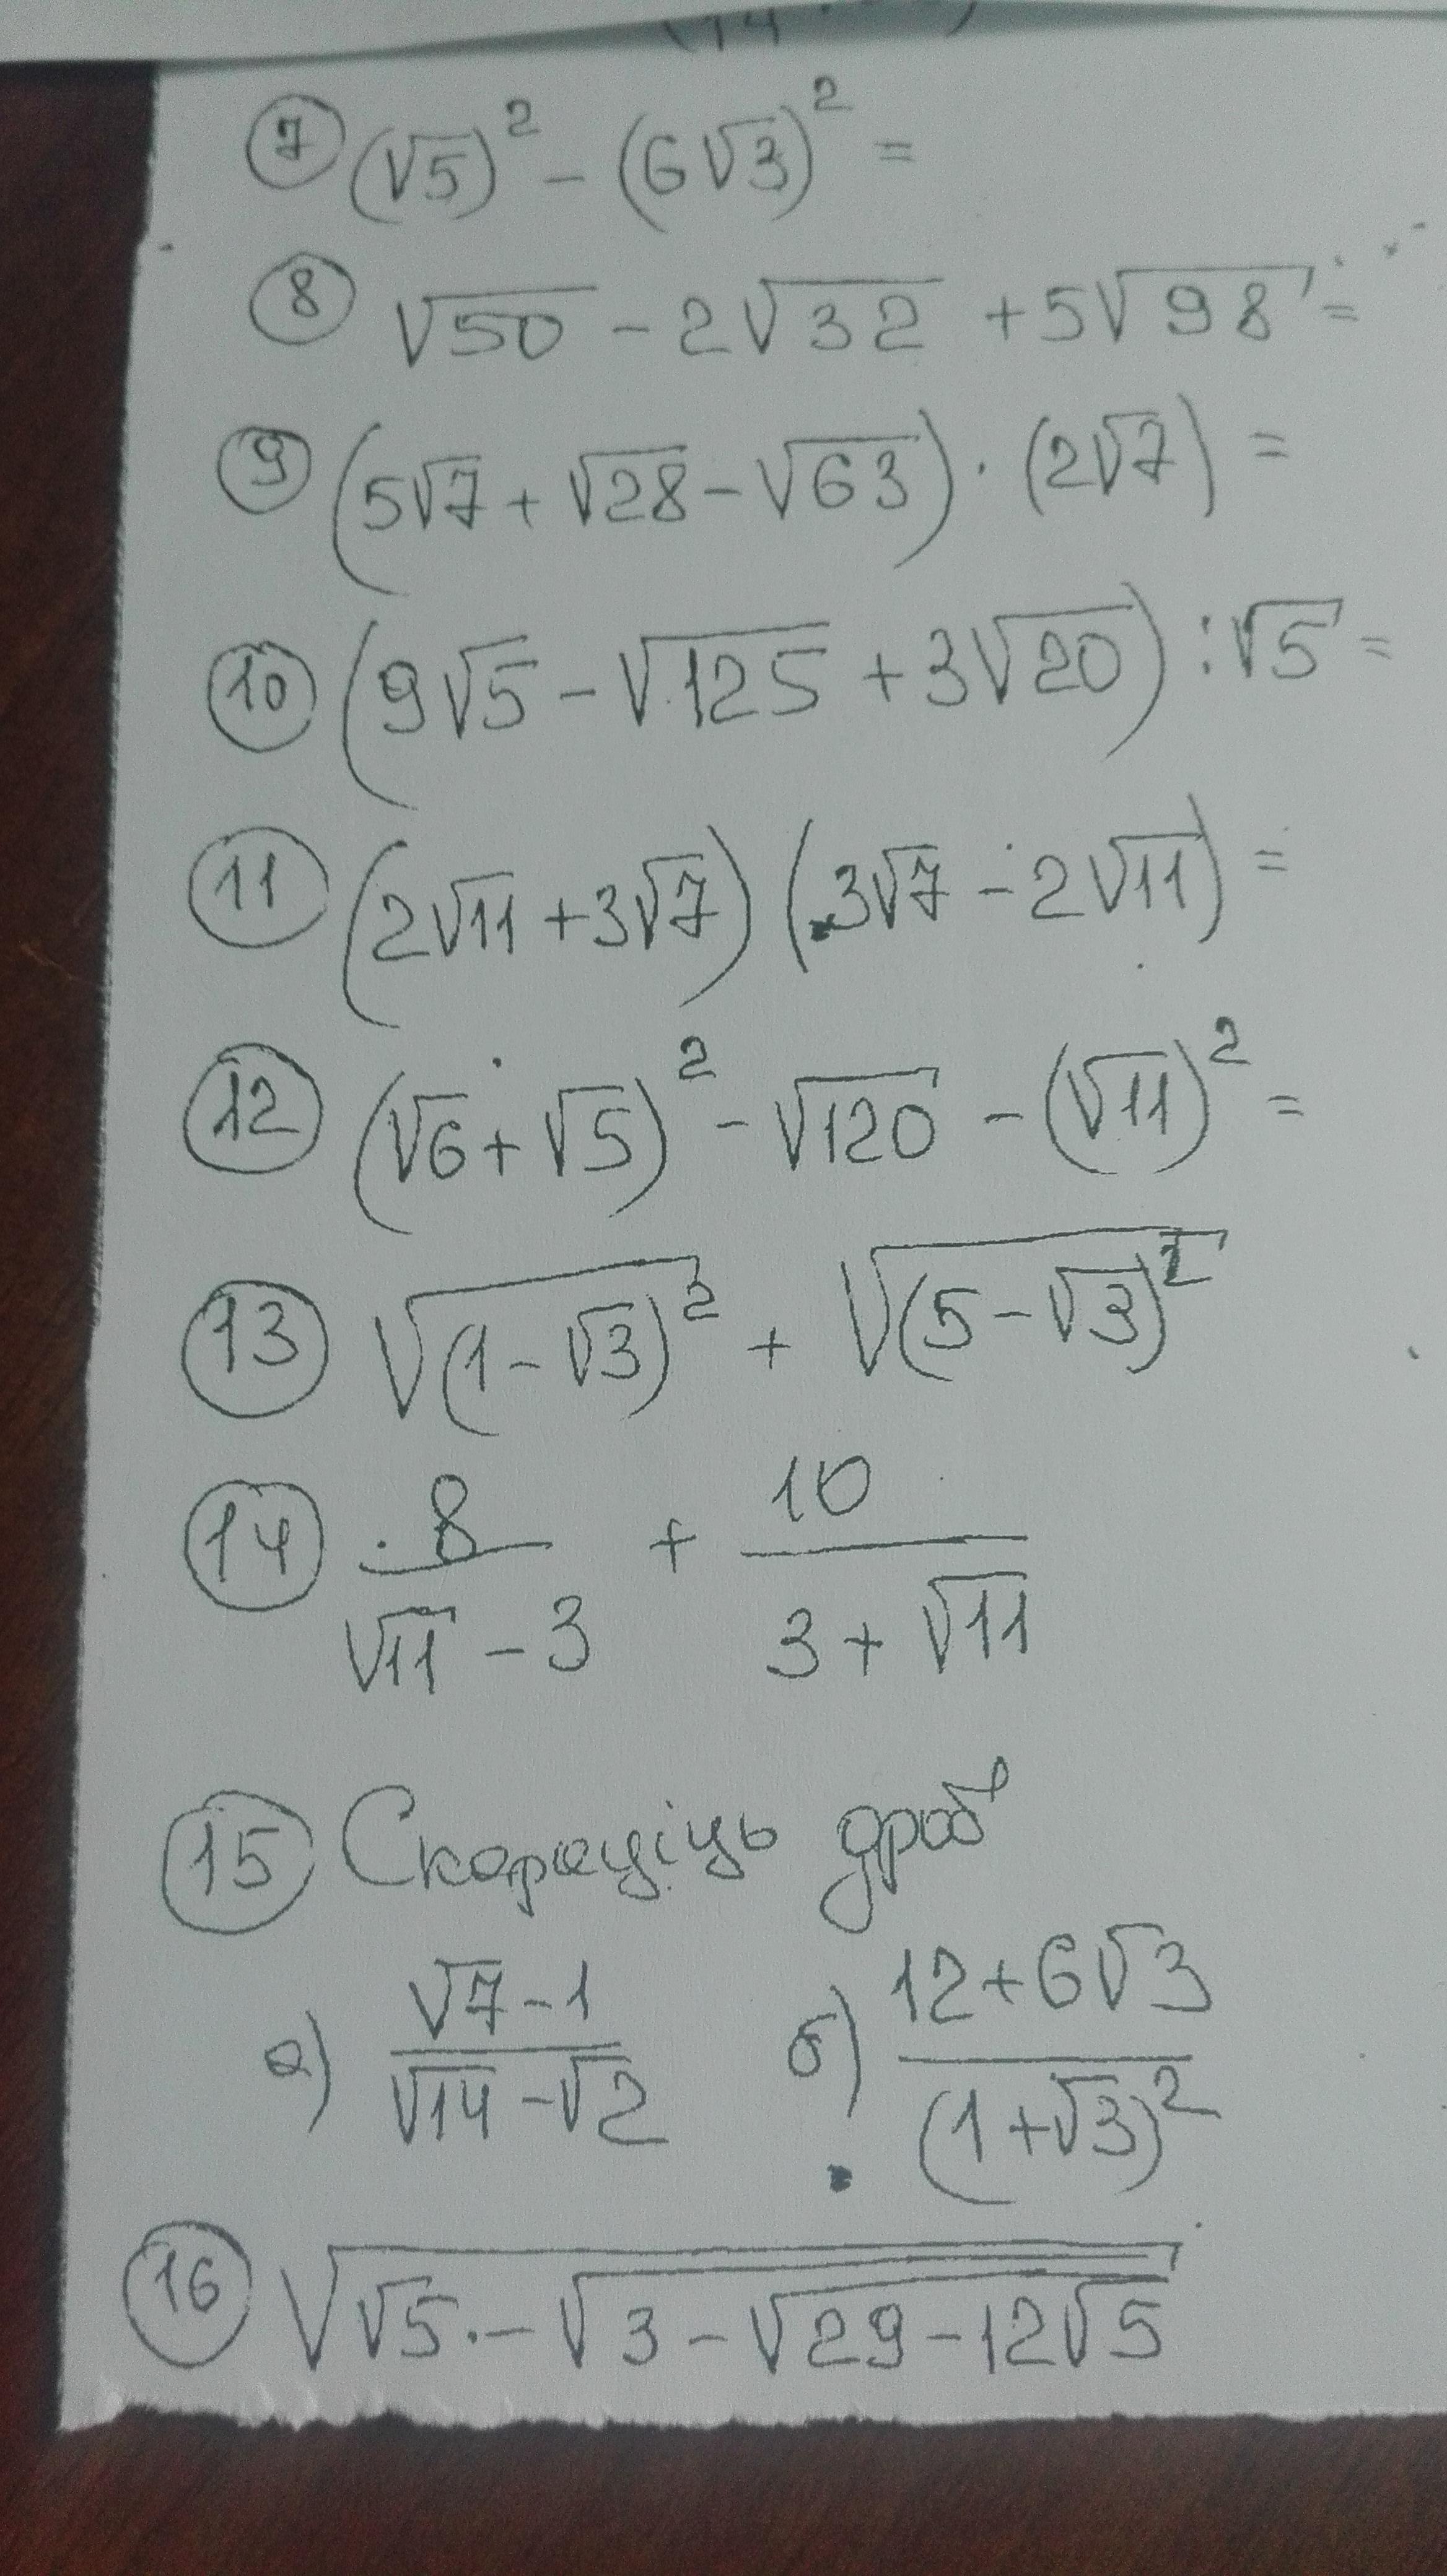 ⑦ (√5)² - (6√3)² =
⑧ √50 - 2√32 + 5√98 =
⑨ (5√7 + √28 - √63) · (2√7) =
⑩ (9√5 - √125 + 3√20) : √5 =
⑪ (2√11 + 3√7) (3√7 - 2√11) =
⑫ (√6 + √5)² - √120 - (√11)² =
⑬ √((1 - √3)²) + √((5 - √3)²)
⑭ 8/(√11 - 3) + 10/(3 + √11)
⑮ Скараціць дроб
а) (√7 - 1)/(√14 - √2) б) (12 + 6√3)/(1 + √3)²
⑯ √(√5 - √(3 - √(29 - 12√5)))